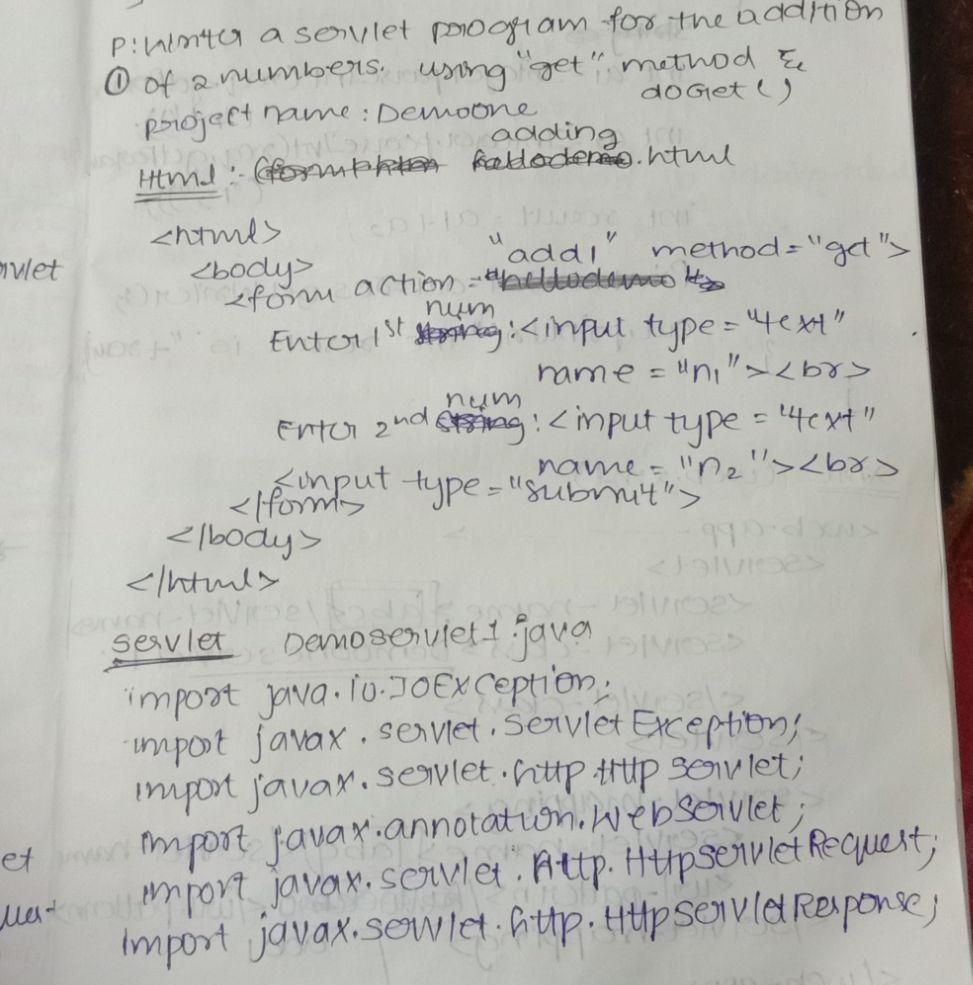 P: Write a servlet program for the addition
① of 2 numbers. using "get" method &
doGet()
project name: Demoone
adding
Html :- .html
<html>
<body>
"add1" method="get">
<form action =
num
Enter 1st : <input type = "text"
name = "n1"><br>
num
Enter 2nd : <input type = "text"
name = "n2"><br>
<input type = "submit">
</form>
</body>
</html>
servlet Demoservlet1.java
import java.io.IOException;
import javax.servlet.ServletException;
import javax.servlet.http.Http servlet;
import javax.annotation.WebServlet;
import javax.servlet.http.HttpServletRequest;
import javax.servlet.http.HttpServletResponse;